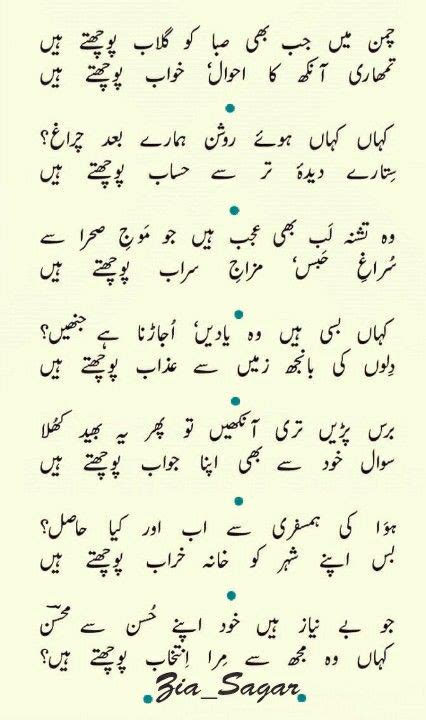 چمن میں جب بھی صبا کو گلاب پوچھتے ہیں
تمھاری آنکھ کا احوال٬ خواب پوچھتے ہیں
کہاں کہاں ہوئے روشن ہمارے بعد چراغ؟
سِتارے دیدۂ تر سے حساب پوچھتے ہیں
وہ تشنہ لَب بھی عجب ہیں جو مَوجِ صحرا سے
سُراغِ حَبس٬ مزاجِ سراب پوچھتے ہیں
کہاں بسی ہیں وہ یادیں٬ اُجاڑنا ہے جنھیں؟
دِلوں کی بانجھ زمیں سے عذاب پوچھتے ہیں
برس پڑیں تری آنکھیں تو پھر یہ بھید کھُلا
سوال خود سے بھی اپنا جواب پوچھتے ہیں
ہوَا کی ہمسفری سے اب اور کیا حاصل؟
بس اپنے شہر کو خانہ خراب پوچھتے ہیں
جو بے نیاز ہیں خود اپنے حُسن سے محسنؔ
کہاں وہ مجھ سے مِرا اِنتخاب پوچھتے ہیں؟
Zia_Sagar